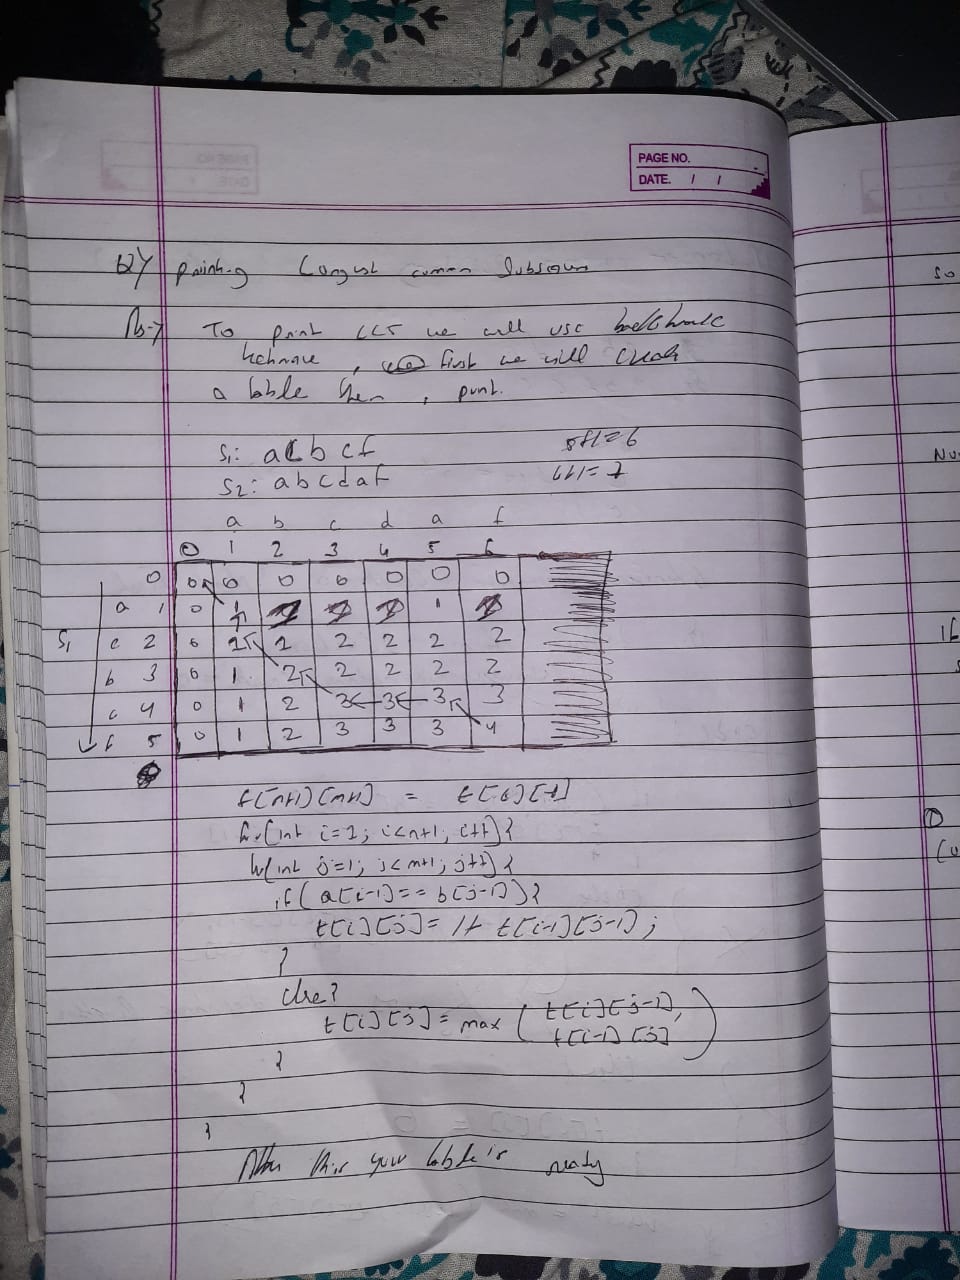 PAGE NO.
DATE. / /
Q) printing Longest common Subsequ
To print LCS we will use
technique , first we will create
a table then , print.
S1: acbcf
S2: abcdaf
a b c d a f
0 1 2 3 4 5 6
0 0 0 0 0 0 0 0
a 1 0 1 1 1 1 1 1
S1 c 2 0 1 1 2 2 2 2
b 3 0 1 2 2 2 2 2
c 4 0 1 2 3 3 3 3
f 5 0 1 2 3 3 3 4
t[n+1][m+1] = t[6][7]
for(int i=1; i<n+1; i++){
for(int j=1; j<m+1; j++){
if(a[i-1]==b[j-1]){
t[i][j]= 1+ t[i-1][j-1];
}
else{
t[i][j]= max ( t[i][j-1],
t[i-1][j] )
}
}
}
After this your table is ready
so
If